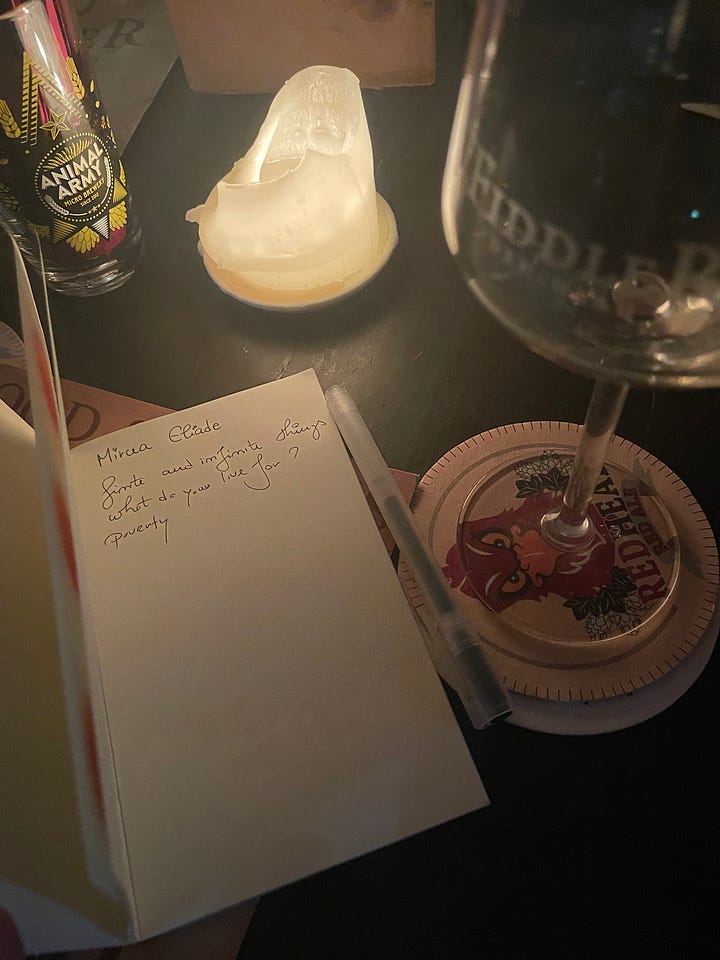 ANIMAL
ARMY
MICRO BREWERY
SINCE 2015
FIDDLER
OLD
Mircea Eliade
finite and infinite things
what do you live for?
poverty
RED HEA
RED ALE